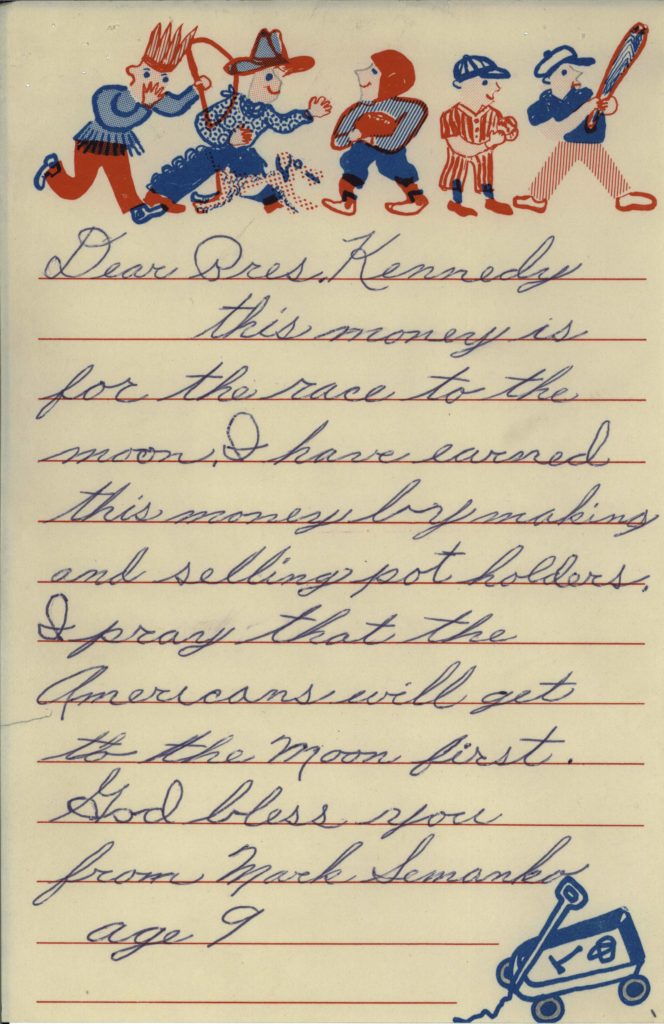 Dear Pres. Kennedy
this money is
for the race to the
moon. I have earned
this money by making
and selling pot holders.
I pray that the
Americans will get
to the Moon first.
God bless you
from Mark Semanko
age 9